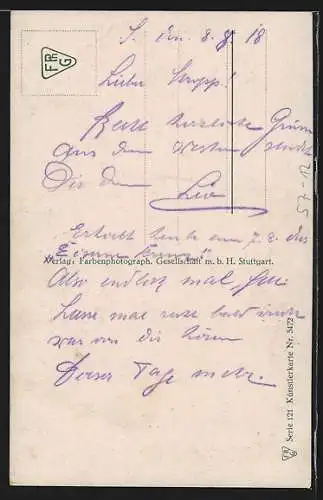 FPG
S., den 8.8.18
Lieber Knopf!
Recht herzliche Grüsse
aus dem Westen sendet
Dir Dein Leo
57-12
Erhielt heute am 7.8. das
"Eiserne Kreuz"
Verlag: Farbenphotograph. Gesellschaft m. b. H. Stuttgart.
Also endlich mal,
Lasse mal recht bald
was von dir hören
Dieser Tage mehr.
Serie 121 Künstlerkarte Nr. 3472